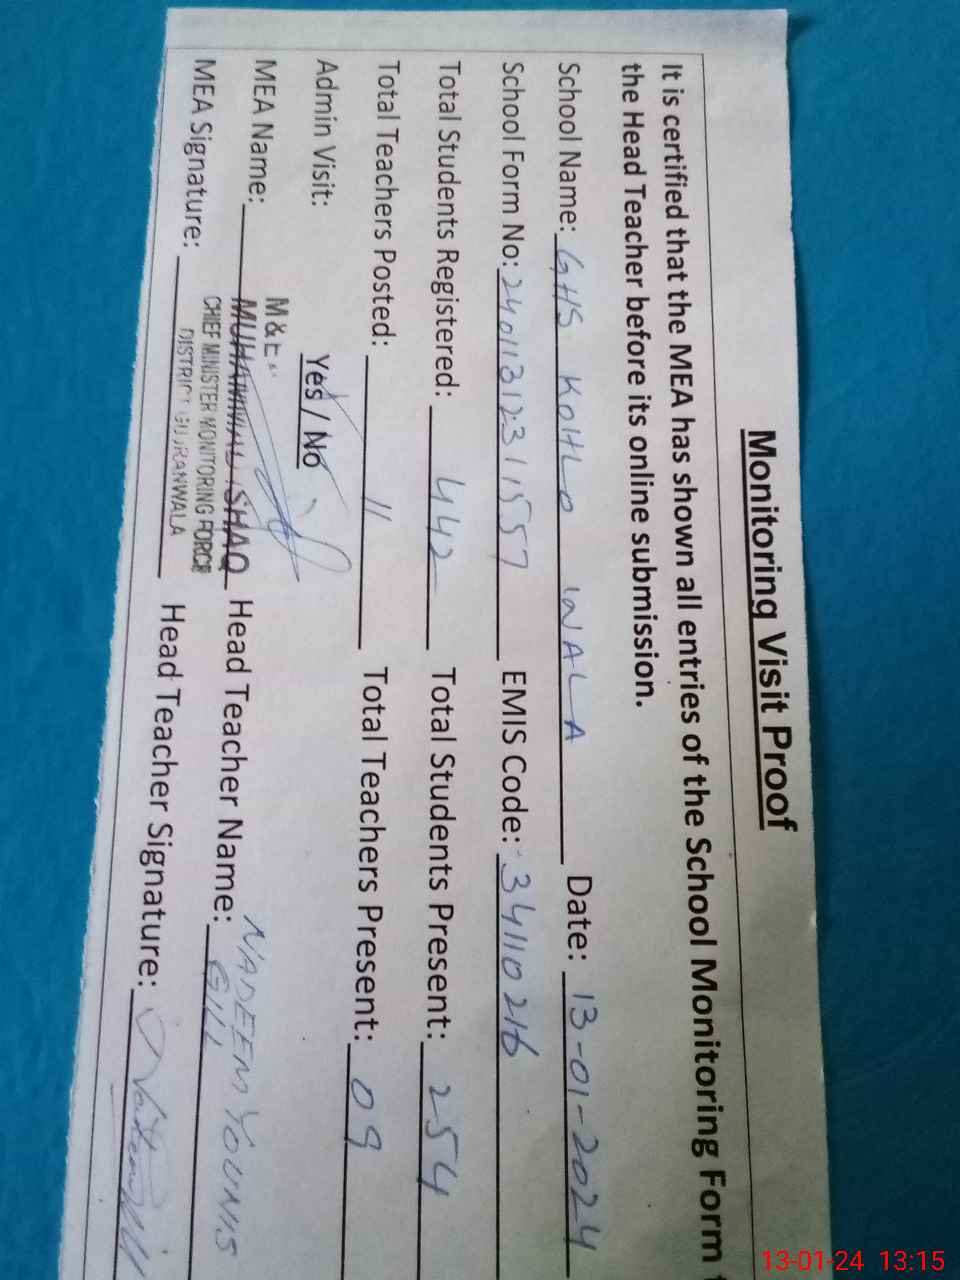 Monitoring Visit Proof
It is certified that the MEA has shown all entries of the School Monitoring Form
the Head Teacher before its online submission.
School Name: GHS KOHLO WALA Date: 13-01-2024
School Form No: 24011312311557 EMIS Code: 34110216
Total Students Registered: 442 Total Students Present: 254
Total Teachers Posted: 11 Total Teachers Present: 09
Admin Visit: Yes / No
M & E
MEA Name: MUHAMMAD ISHAQ Head Teacher Name: NADEEM YOUNIS
GILL
CHIEF MINISTER MONITORING FORCE
MEA Signature: DISTRICT GUJRANWALA Head Teacher Signature:
13-01-24 13:15